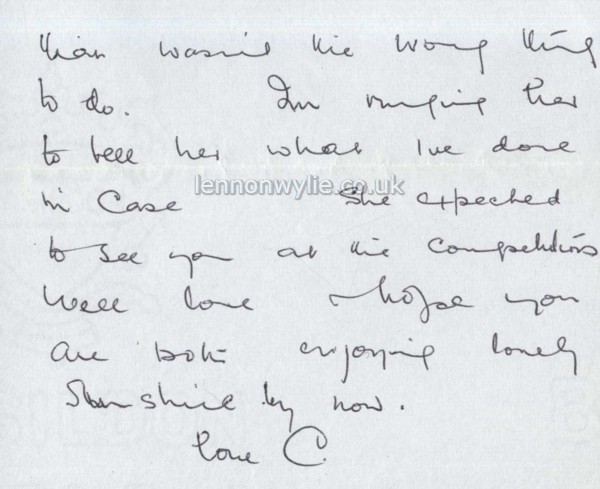 that wasn't the wrong thing
to do. I'm ringing her
to tell her what I've done
in case she expected
to see you at the competitions
Well love & hope you
are both enjoying lovely
Sunshine by now.
love C.
lennonwylie.co.uk